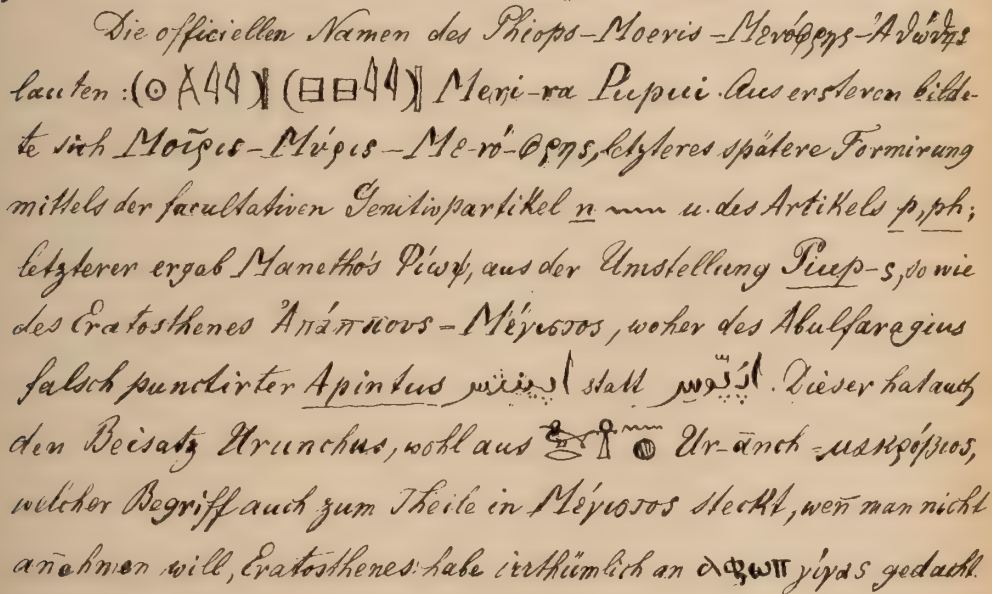 Die officiellen Namen des Phiops–Moeris–Μενόφρης–Ἀθώθης
lauten: (𓇳𓌻𓇋𓇋) (𓊪𓊪𓇋𓇋) Meri-ra Pupui. Aus ersteren bilde-
te sich Μοῖρις–Μύρις–Με-νό-φρης, letzteres spätere Formirung
mittels der facultativen Genitivpartikel n 𓈖 u. des Artikels p, ph;
letzterer ergab Manethós Φίωψ, aus der Umstellung Piup-s, so wie
des Eratosthenes Ἀπάππους–Μέγιστος, woher des Abulfaragius
falsch punctirter Apintus statt. Dieser hat auch
den Beisatz Urunchus, wohl aus Ur-ānch = μακρόβιος,
welcher Begriff auch zum Theile in Μέγιστος steckt, wen̄ man nicht
an̄ehmen will, Eratosthenes habe irrthümlich an ⲁⲫⲱⲡ γίγας gedacht.